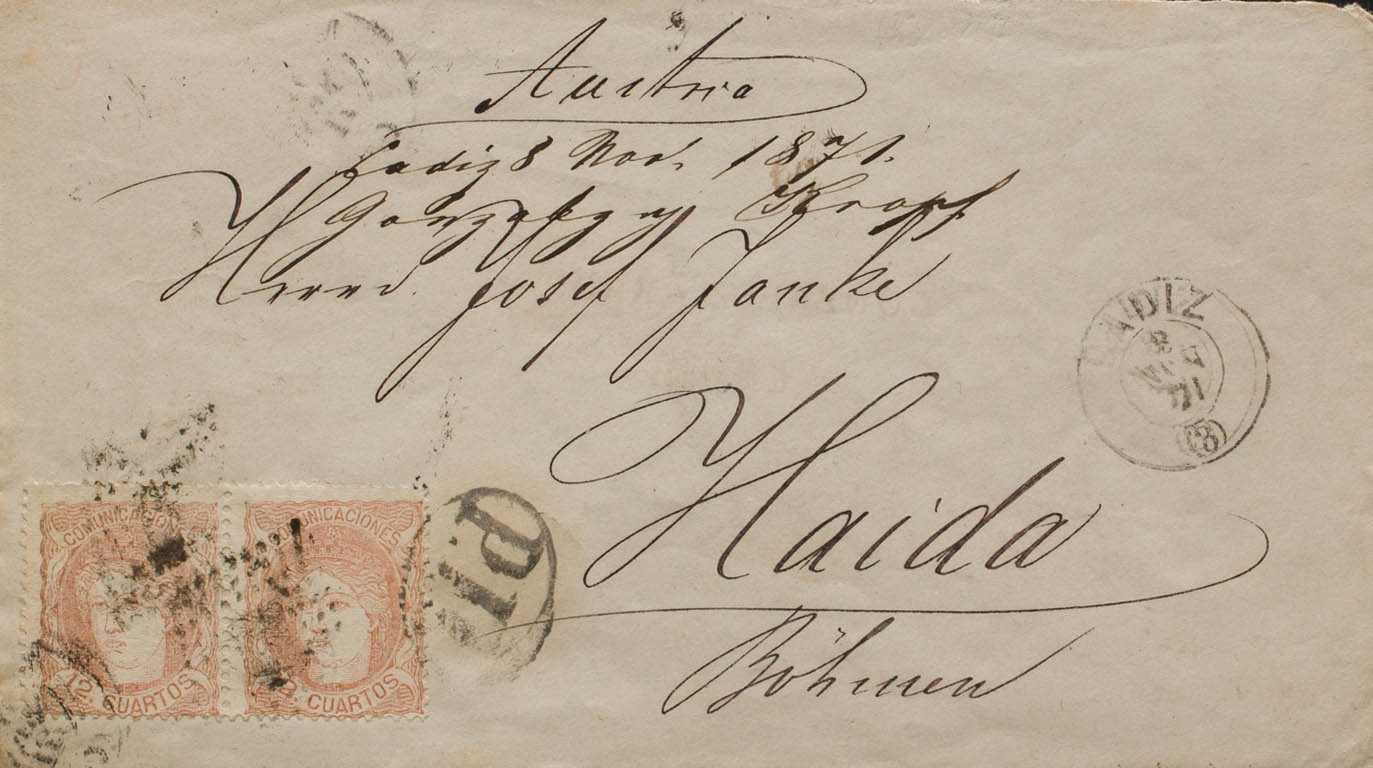 Austria
Cadiz 8 Nov. 1871.
Gonzalez y Kropf
Herrn Josef Janke
Haida
Böhmen
CADIZ
8 NOV 71
(3)
PD
COMUNICACIONES
12 CUARTOS
COMUNICACIONES
12 CUARTOS